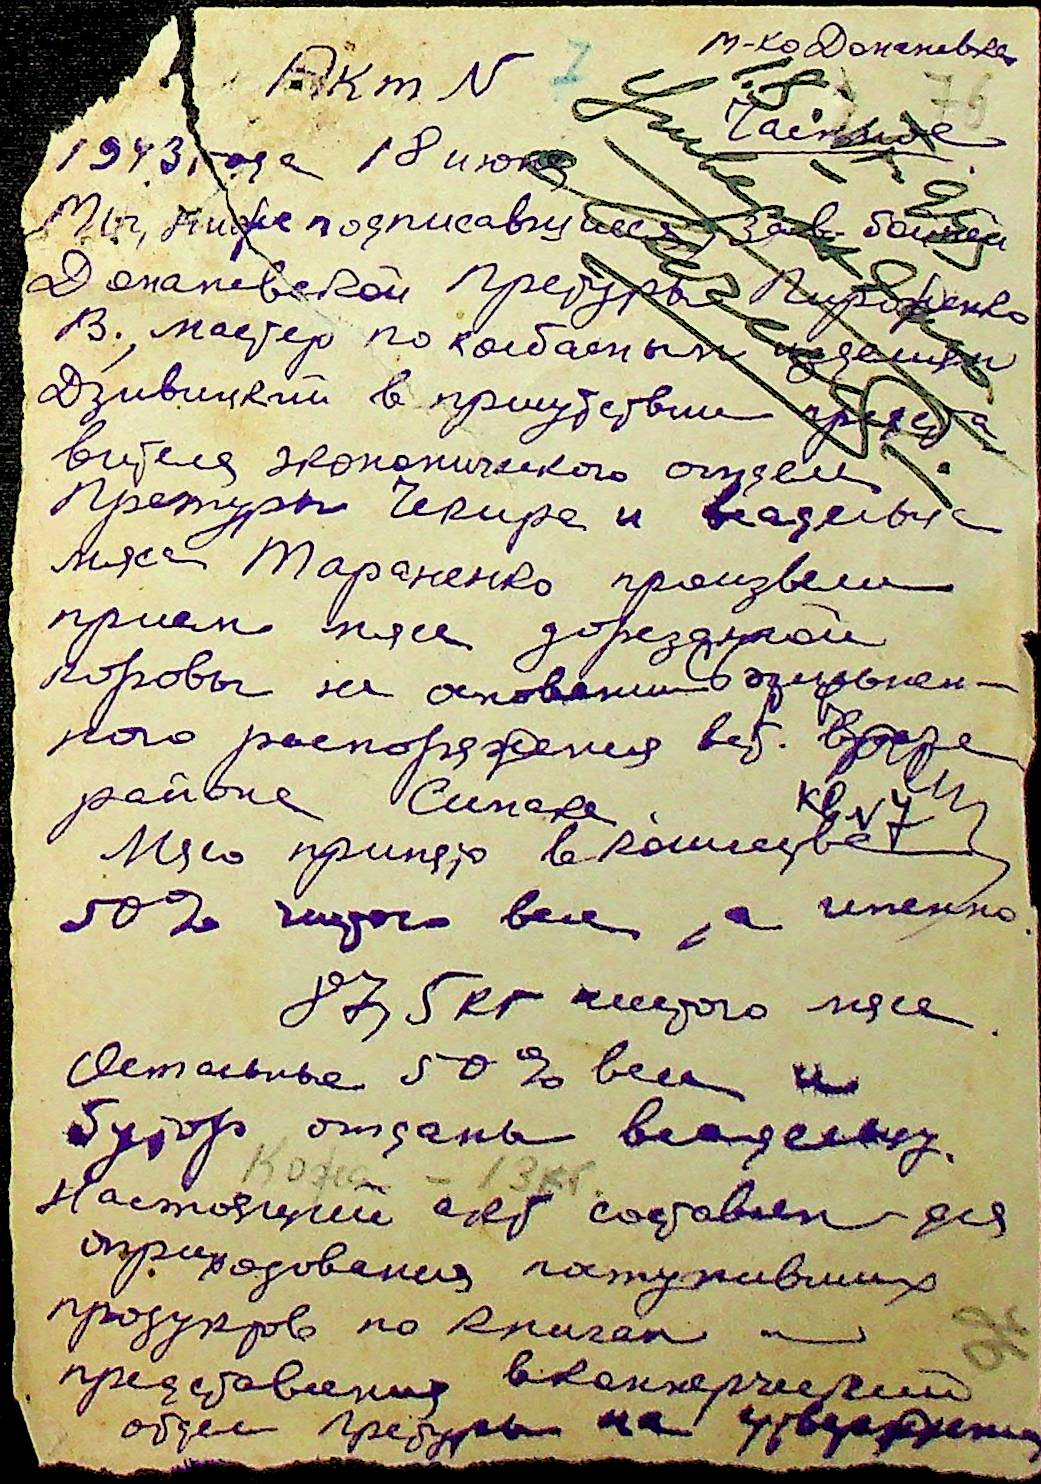 м-ко Доманевка
Акт N 7
76
Частные
1943 года 18 июня
Мы, нижеподписавшиеся, Зав. бойней
Доманевской Претуры Пироженко
В., мастер по колбасным изделиям
Дзивицкий в присутствии предста
вителя экономического отдела
Претуры Чекира и владельца
мяса Тараненко произвели
прием мяса дорезанной
коровы на основании письмен-
ного распоряжения вет. врача
района Симака
кв N 7
Мясо принято в количестве
50% чистого веса, а именно
87,5 кг чистого мяса.
Остальные 50% веса и
бутор отданы владельцу.
Кожа - 13 кг.
Настоящий акт составлен для
оприходования поступивших
продуктов по книгам и
представления в коммерческий
отдел Претуры на утверждение